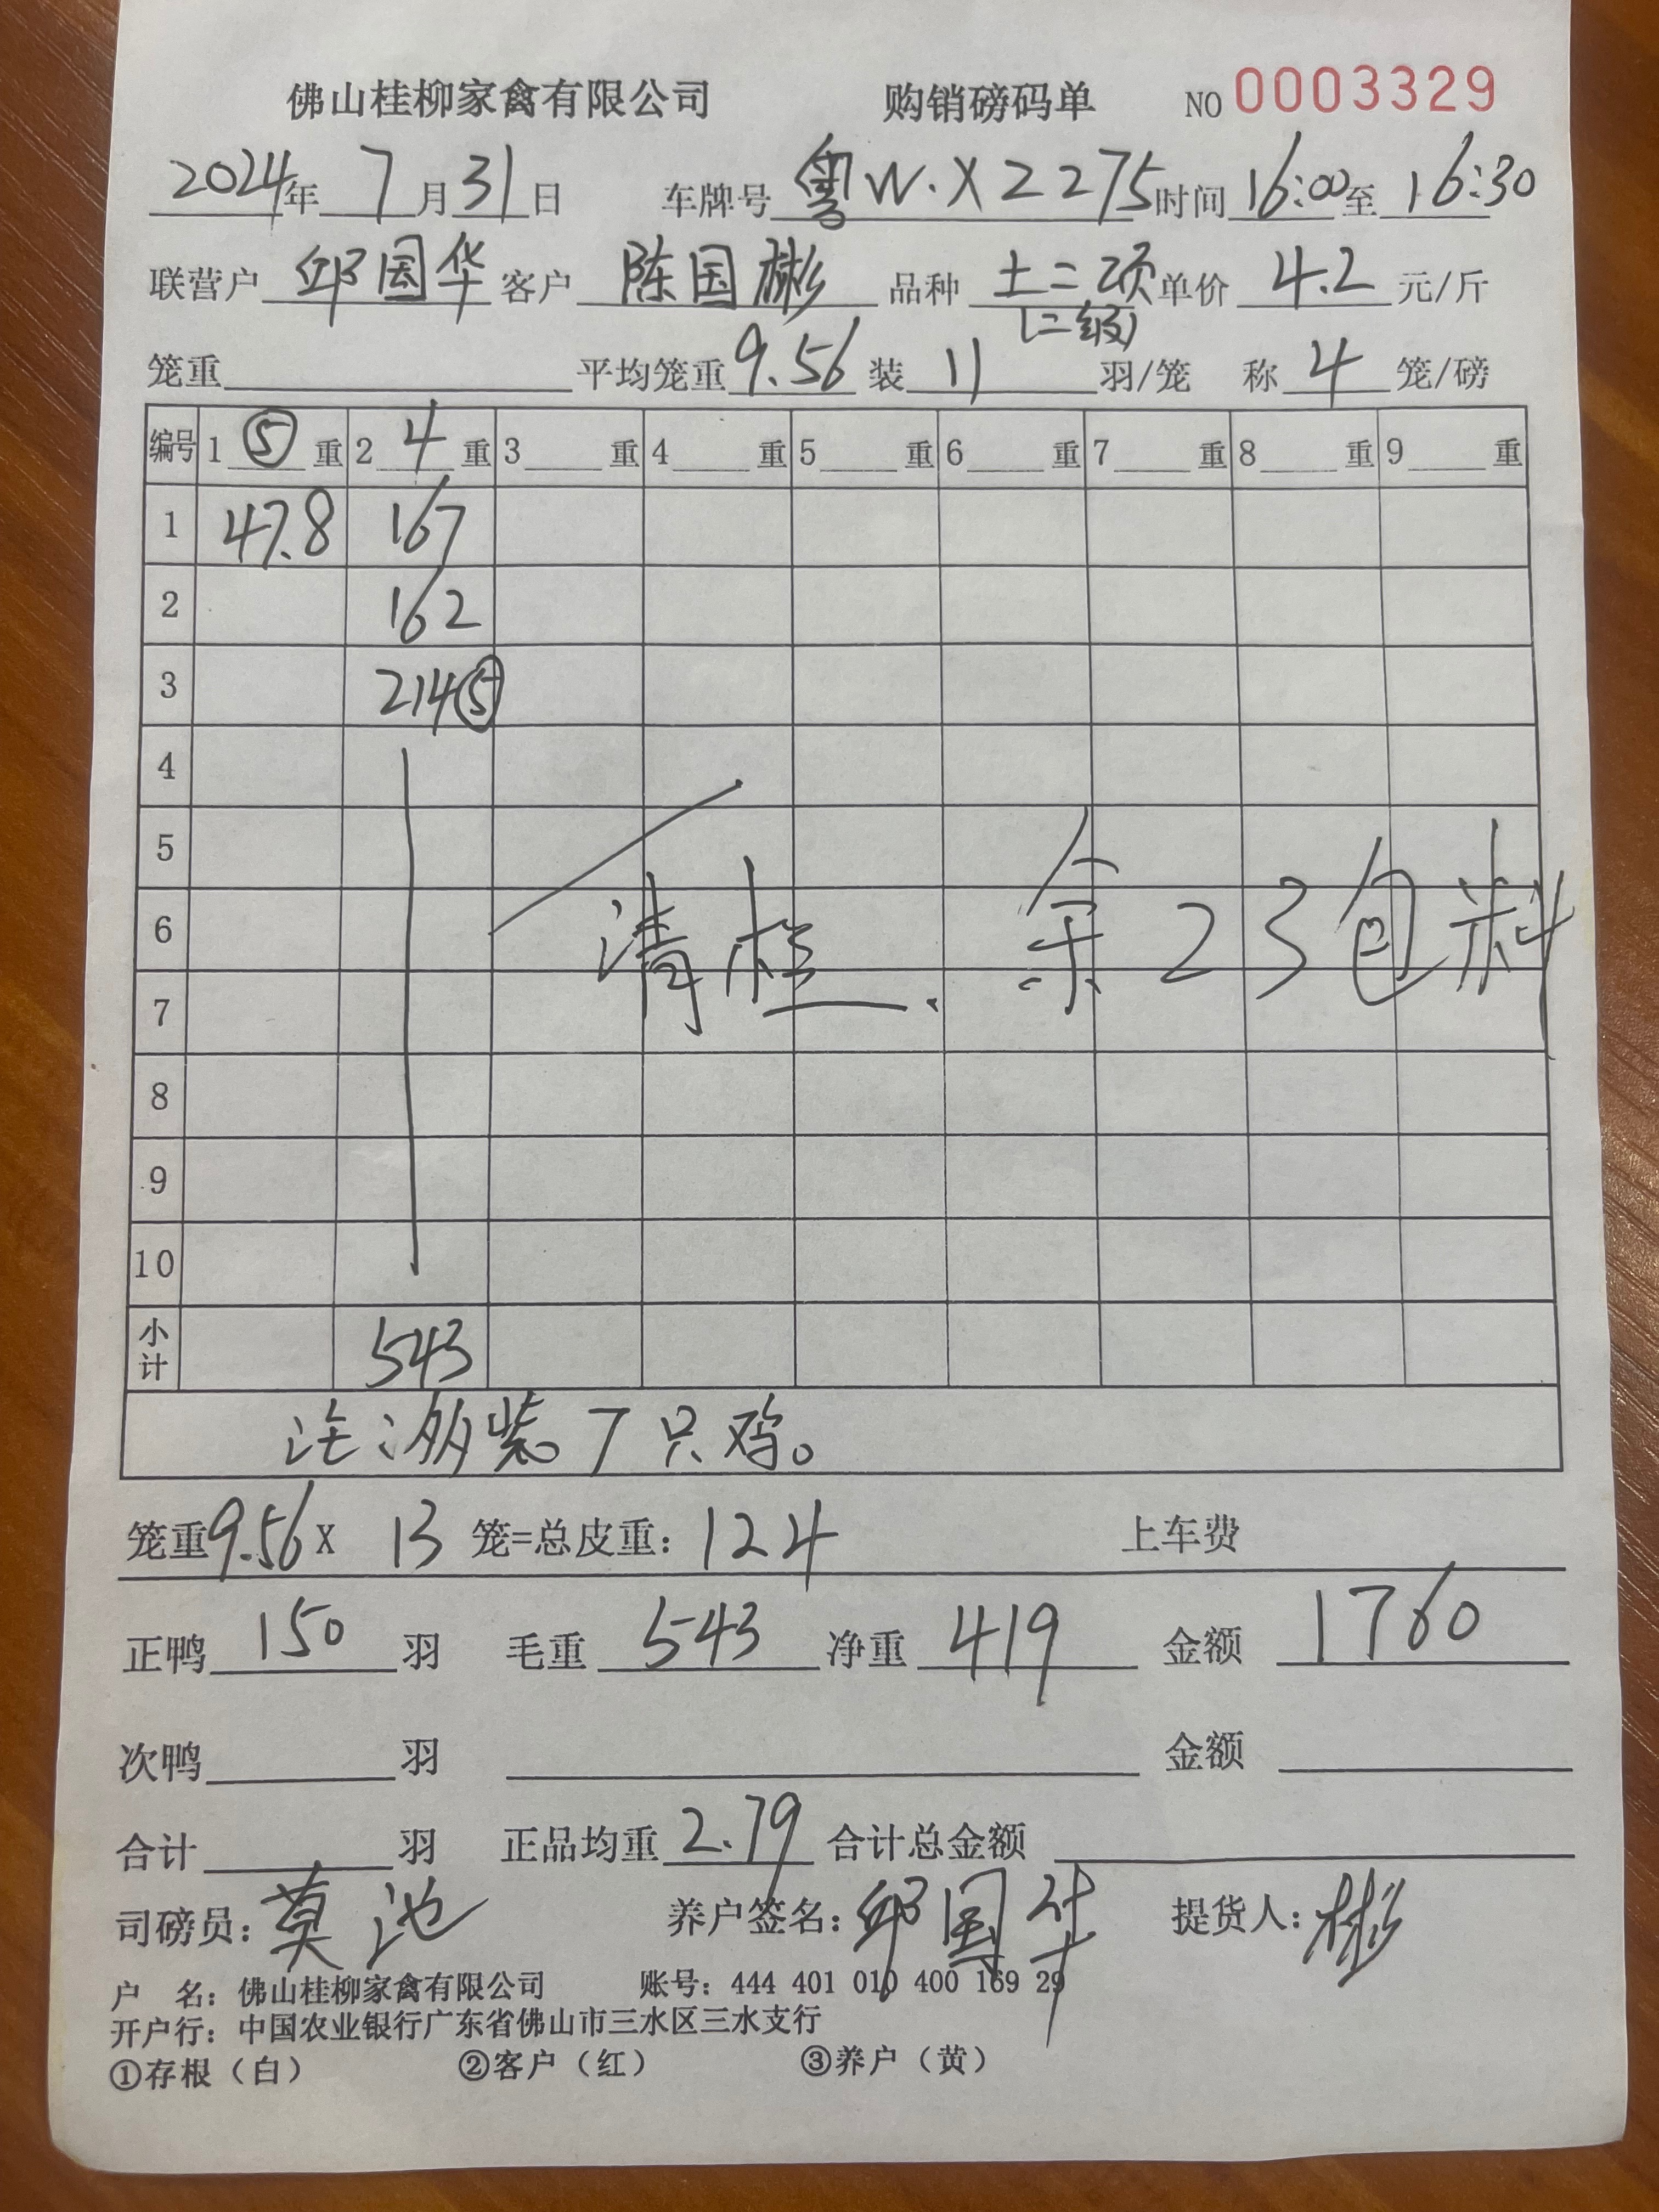 佛山桂柳家禽有限公司 购销磅码单 NO 0003329
2024年 7月31日 车牌号 粤W.X2275 时间 16:00至 16:30
联营户 邱国华 客户 陈国彬 品种 土二项 单价 4.2 元/斤
(二级)
笼重 平均笼重 9.56 装 11 羽/笼 称 4 笼/磅
编号 1 ⑤ 重 2 4 重 3 重 4 重 5 重 6 重 7 重 8 重 9 重
1 47.8 167
2 162
3 214⑤
4
5
6 清栏. 余23包料
7
8
9
10
小计 543
注:多装7只鸡。
笼重9.56X 13 笼=总皮重: 124 上车费
正鸭 150 羽 毛重 543 净重 419 金额 1760
次鸭 羽 金额
合计 羽 正品均重 2.79 合计总金额
司磅员: 莫池 养户签名: 邱国华 提货人: 彬
户 名: 佛山桂柳家禽有限公司 账号: 444 401 010 400 169 29
开户行: 中国农业银行广东省佛山市三水区三水支行
①存根（白） ②客户（红） ③养户（黄）